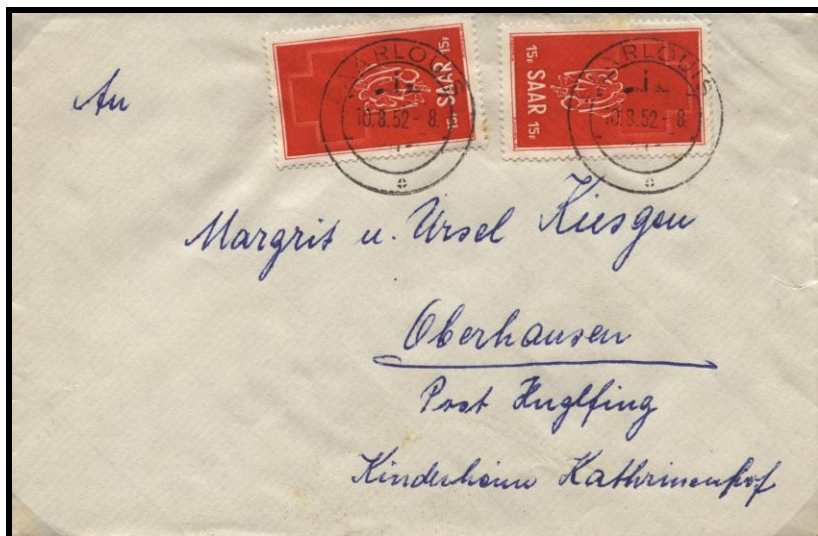 SAAR 15F
15F
SAARLOUIS
10.8.52-8.
15F SAAR 15F
SAARLOUIS
10.8.52-8.
An
Margrit u. Ursel Kiesgen
Oberhausen
Post Huglfing
Kinderheim Kathrinenhof